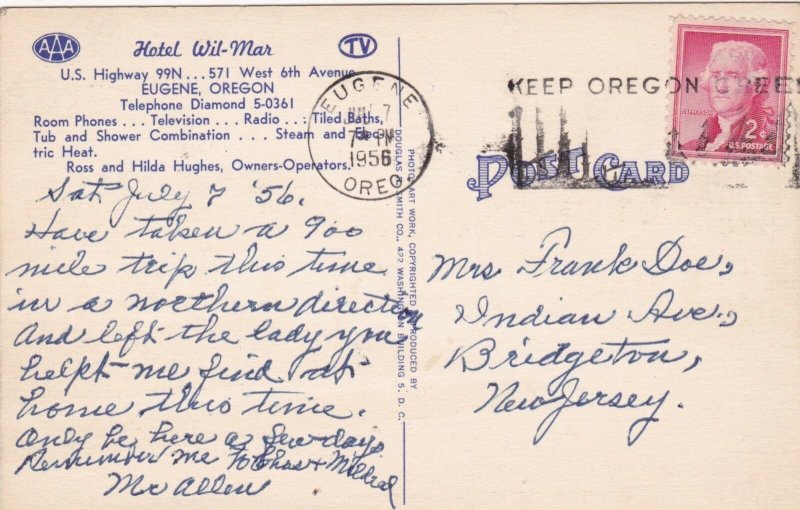 AAA
Hotel Wil-Mar
TV
U.S. Highway 99N...571 West 6th Avenue
EUGENE, OREGON
Telephone Diamond 5-0361
Room Phones ... Television ... Radio ... Tiled Baths,
Tub and Shower Combination ... Steam and Elec-
tric Heat.
Ross and Hilda Hughes, Owners-Operators.
EUGENE
7
PM
1956
OREG
KEEP OREGON GREEN
JEFFERSON
2¢
U.S. POSTAGE
POST CARD
Sat July 7 '56.
Have taken a 900
mile trip this time
in a northern direction
And left the lady you
helpt me find at
home this time.
Only be here a few days
Remember me to Chas + Mildred
Mc Allen
PHOTO, ART WORK, COPYRIGHTED & PRODUCED BY
SMITH CO., 422 WASHINGTON BUILDING 5, D. C.
Mrs Frank Doe,
Indian Ave.,
Bridgeton,
New Jersey.